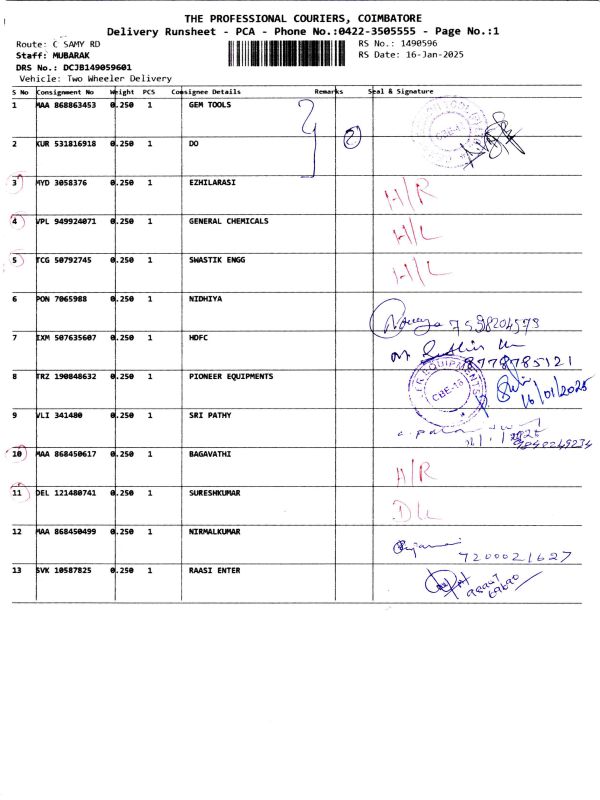 THE PROFESSIONAL COURIERS, COIMBATORE
Delivery Runsheet - PCA - Phone No.:0422-3505555 - Page No.:1
Route: C SAMY RD RS No.: 1490596
Staff: MUBARAK RS Date: 16-Jan-2025
DRS No.: DCJB149059601
Vehicle: Two Wheeler Delivery
S No Consignment No Weight PCS Consignee Details Remarks Seal & Signature
1 MAA 868863453 0.250 1 GEM TOOLS CBE-1
2 KUR 531816918 0.250 1 DO 2
3 MYD 3058376 0.250 1 EZHILARASI H/R
4 VPL 949924071 0.250 1 GENERAL CHEMICALS H/L
5 TCG 50792745 0.250 1 SWASTIK ENGG H/L
6 PON 7065988 0.250 1 NIDHIYA 7598204579
7 IXM 507635607 0.250 1 HDFC 8778785121
8 TRZ 190848632 0.250 1 PIONEER EQUIPMENTS EQUIPMENTS CBE-18 16/01/2025
9 VLI 341480 0.250 1 SRI PATHY
10 MAA 868450617 0.250 1 BAGAVATHI H/R
11 DEL 121480741 0.250 1 SURESHKUMAR DL
12 MAA 868450499 0.250 1 NIRMALKUMAR 7200021627
13 SVK 10587825 0.250 1 RAASI ENTER